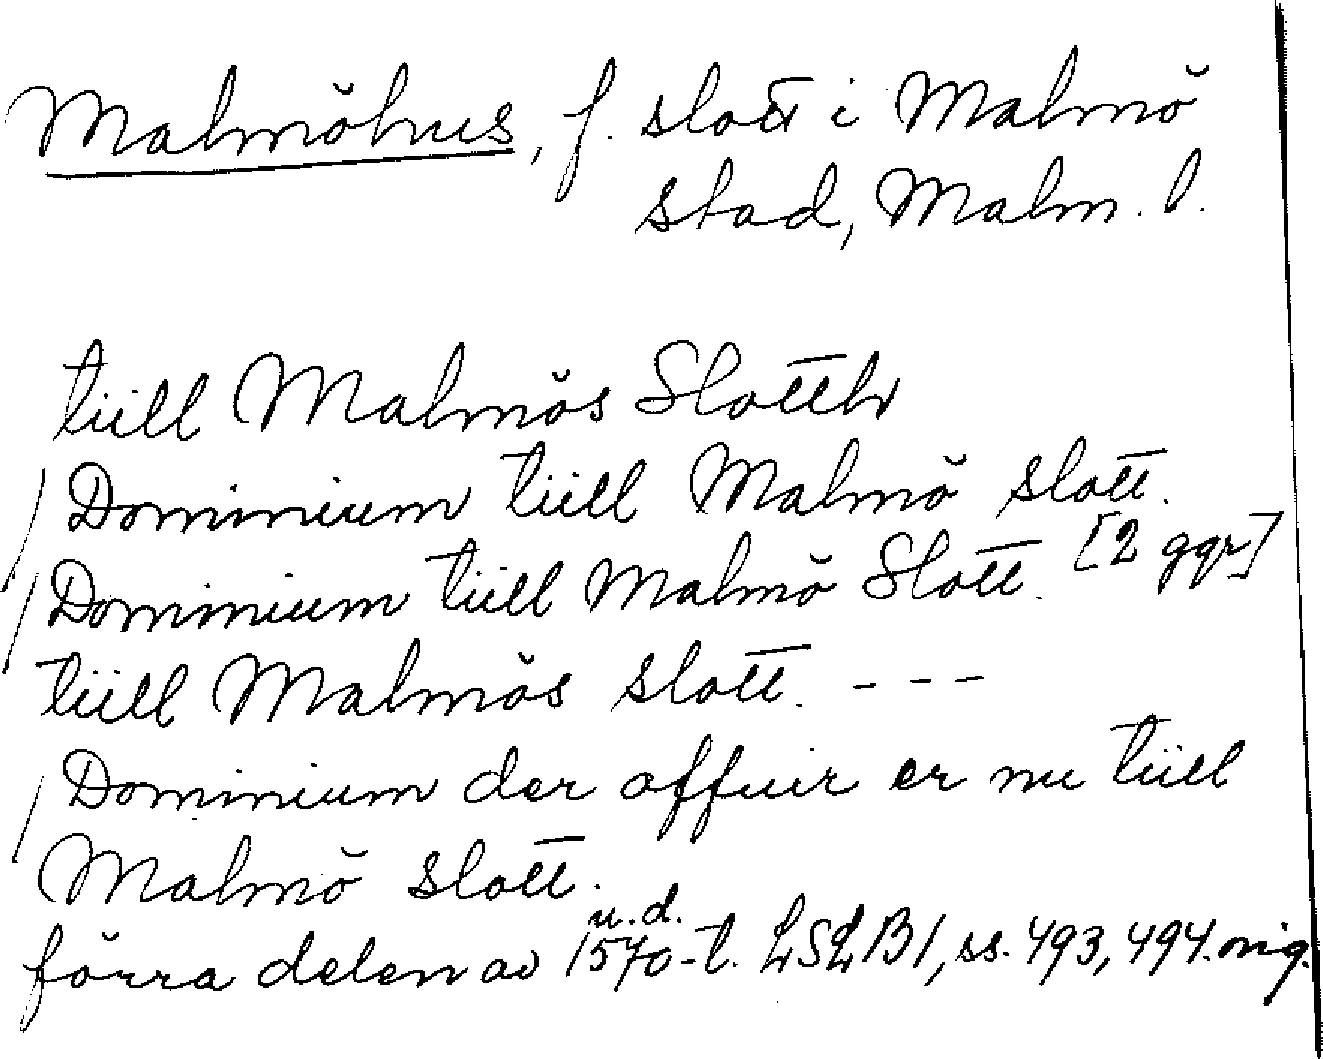 Malmöhus, f. slott i Malmö
stad, Malm. l.
tiill Malmös Slotth
/ Dominium tiill Malmö slott.
/ Dominium tiill Malmö Slott. [2 ggr]
tiill Malmös slott. - - -
/ Dominium der affuir er nu tiill
Malmö slott.
u. d.
förra delen av 1570-t. LSLB1, ss. 493, 494. orig.